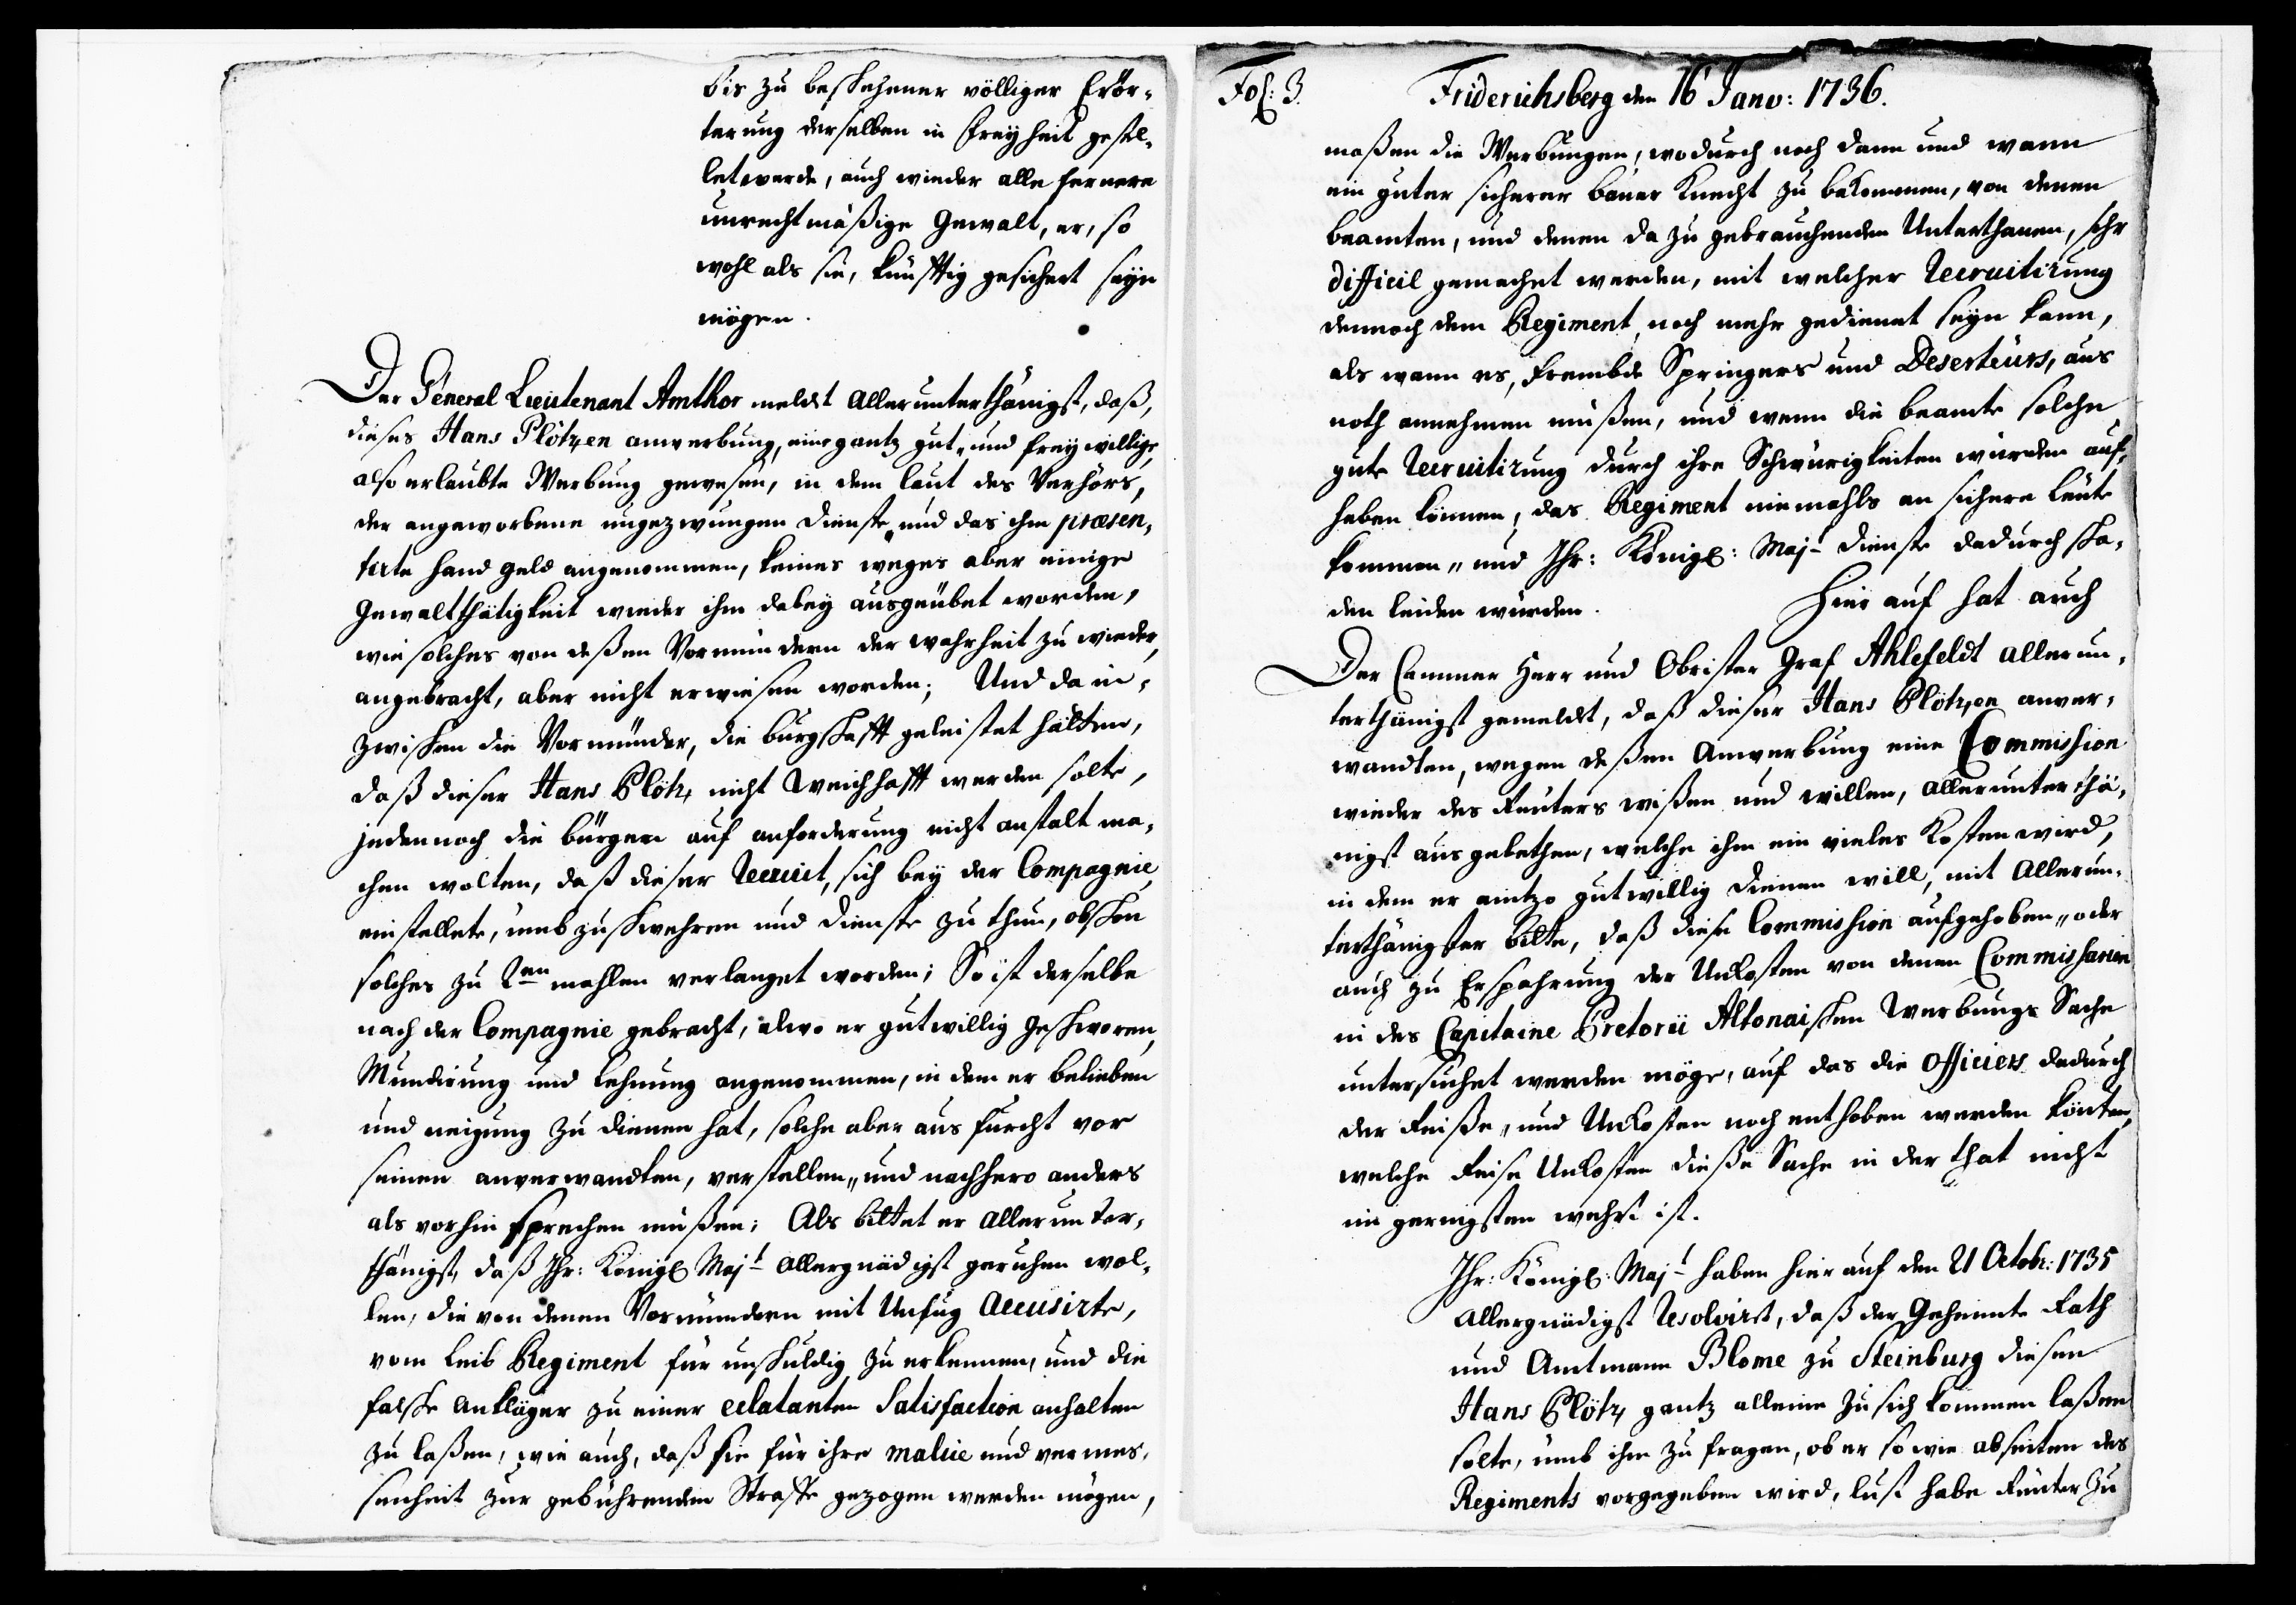 bis zu beschehener völliger Erör-
terung derselben in Freyheit gestel-
let werde, auch wieder alle fernere
unrechtmäßige Gewalt, er, so
wohl als sie, künfftig gesichert seyn
mögen.
Der General Lieutenant Amthor meldet allerunterthänigst, daß,
dieses Hans Plötzen anwerbung, eine gantz gut- und freywillige,
also erlaubte Werbung gewesen, in dem laut des Verhörs,
der angeworbene ungezwungen Dienste und das ihm præsen-
tirte hand geld angenommen, keines weges aber einige
Gewaltthätigkeit wieder ihm dabey ausgeübet worden,
wie solches von deßen Vormündern der wahrheit zu wieder,
angebracht, aber nicht erwiesen worden; Und da in-
zwischen die Vormünder, die bürgschafft geleistet hätten,
daß dieser Hans Plötz, nicht weichhafft werden solte,
jedennoch die bürgen auf anforderung nicht anstalt ma-
chen wolten, daß dieser Recruit, sich bey der Compagnie
einstellete, umb zu schwehren und Dienste zu thun, obschon
solches zu 2en mahlen verlanget worden; So ist derselbe
nach der Compagnie gebracht, alwo er gutwillig geschworen,
Mundirung und Lehnung angenommen, in dem er belieben
und neigung zu dienen hat, solche aber aus furcht vor
seinen anverwandten, verstellen, und nachhero anders
als vorhin sprechen müßen; Als bittet er allerunter-
thänigst, daß Ihr: Königl Majt allergnädigst geruhen wol-
len, die von denen Vormündern mit Unfug Accusirte,
vom Leib Regiment für unschuldig zu erkennen, und die
falsche Ankläger zu einer eclatanten Satisfaction anhalten
zu laßen, wie auch, daß sie für ihre malice und vermes-
senheit zur gebührenden Straffe gezogen werden mögen,
Fol: 3.
Friderichsberg den 16 Janv: 1736.
maßen die Werbungen, wodurch noch dann und wann
ein guter sicherer bauer Knecht zu bekommen, von denen
beamten, und denen da zu gebrauchenden Unterthanen, sehr
difficil gemachet werden, mit welcher Recruitirung
dennoch dem Regiment noch mehr gedienet seyn kann,
als wann es, frembde Springers und Deserteurs, aus
noth annehmen müßen, und wenn die beamte solche
gute Recruitirung durch ihre Schwürigkeiten würden auf-
haben können, das Regiment niemahls an sichere Leute
kommen, und Ihr: Königl: Majt Dienste dadurch scha-
den leiden würden.
Hier auf hat auch
Der Cammer Herr und Obrister Graf Ahlefeldt allerun-
terthänigst gemeldet, daß dieser Hans Plötzen anver-
wandten, wegen deßen Anwerbung eine Commission
wieder des Reuters wißen und willen, allerunterthä-
nigst ausgebethen, welche ihm ein vieles Kosten wird,
in dem er anitzo gutwillig dienen will, mit Allerun-
terthänigster bitte, daß diese Commission aufgehoben, oder
auch zu Erspahrung der Unkosten von denen Commissarien
in des Capitaine Pretorii Altonaischen Werbungs Sache
untersuchet werden möge, auf das die Officiers dadurch
der Reise, und Unkosten noch enthoben werden könten,
welche Reise Unkosten dieße Sache in der that nicht
im geringsten wehrt ist.
Ihr: Königl: Majt haben hier auf den 21 Octobr: 1735
Allergnädigst Resolvirt, daß der Geheimte Rath
und Amtmann Blome zu Steinburg diesen
Hans Plötz gantz alleine zu sich kommen laßen
solte, umb ihn zu fragen, ob er so wie abseiten des
Regiments vorgegeben wird, lust habe Reuter zu